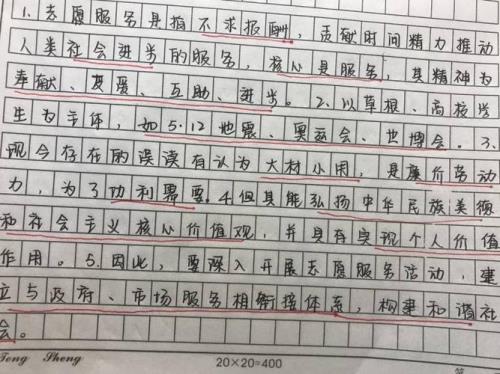 1.志愿服务是指不求报酬，贡献时间精力推动
人类社会进步的服务，核心是服务，其精神为
奉献、友爱、互助、进步。2.以草根、高校学
生为主体，如5·12地震、奥运会、世博会。3.
现今存在的误读有认为大材小用，是廉价劳动
力，为了功利需要。4.但其能弘扬中华民族美德
和社会主义核心价值观，并具有实现个人价值
作用。5.因此，要深入开展志愿服务活动，建
立与政府、市场服务相衔接体系，构建和谐社
会。
Tong Sheng
20×20=400
第